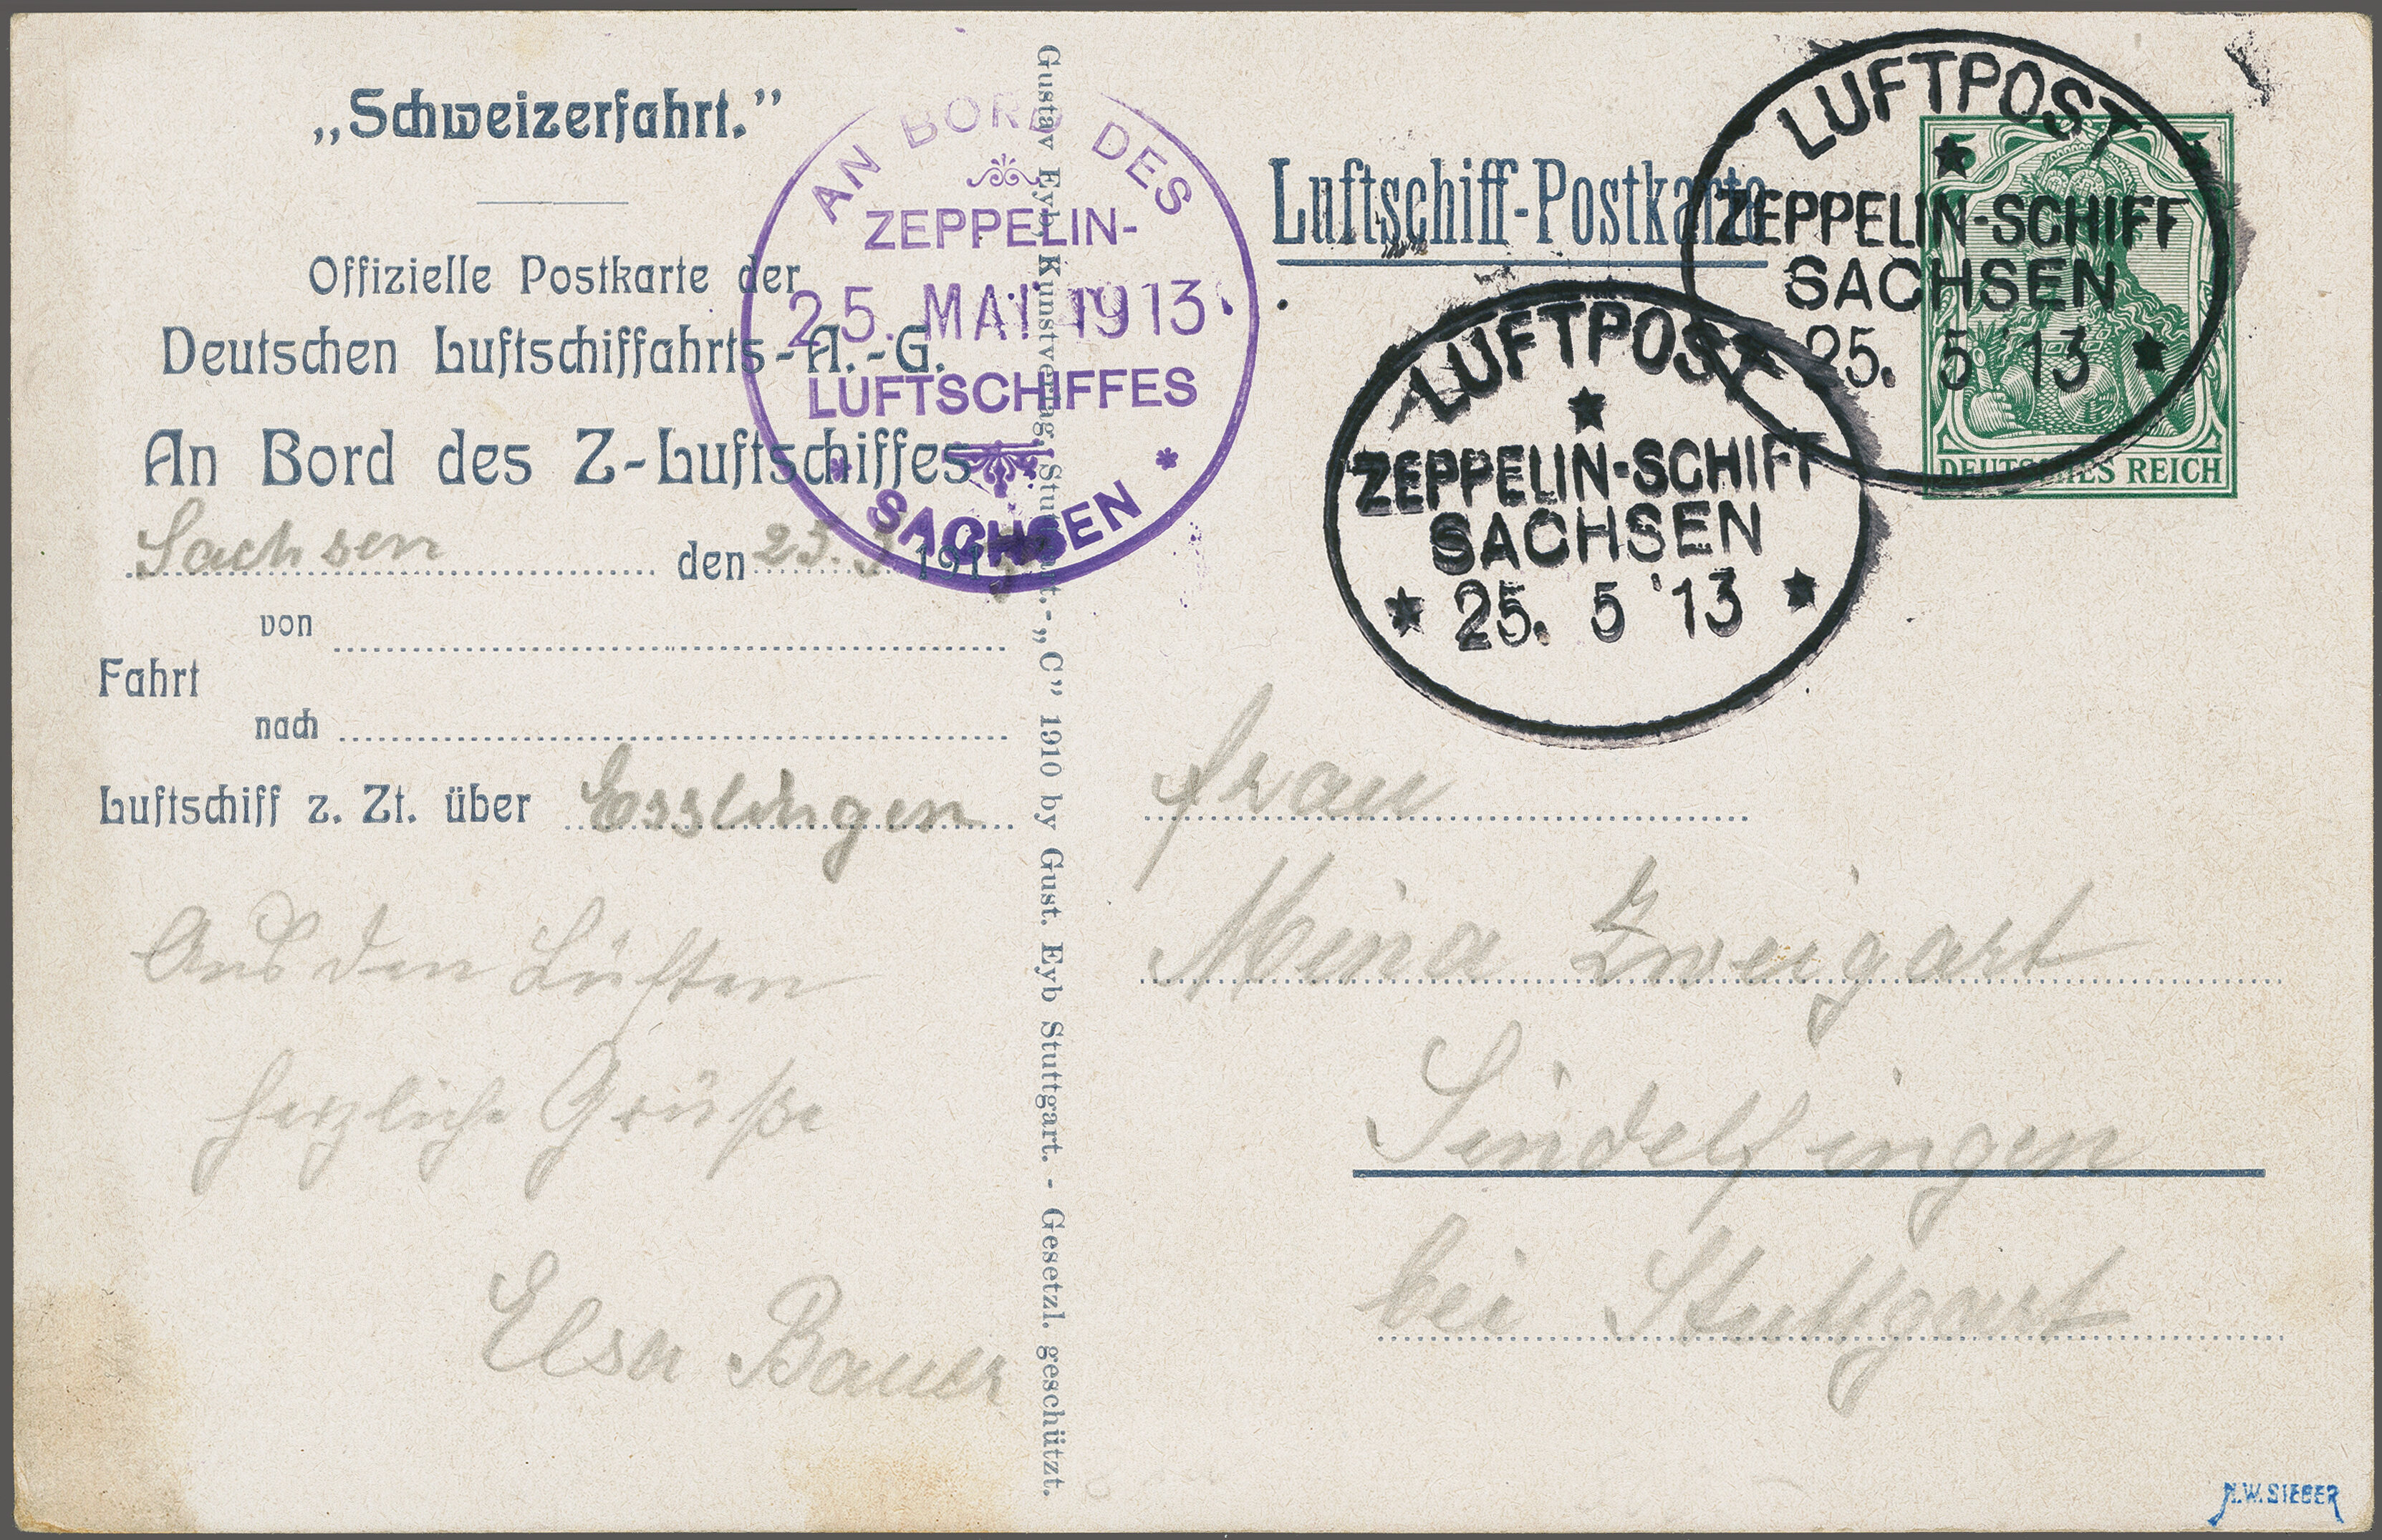 „Schweizerfahrt.”
Offizielle Postkarte der
Deutschen Luftschiffahrts-A.-G.
An Bord des Z-Luftschiffes
Sachsen den 25. 5 1913
von
Fahrt
nach
Luftschiff z. Zt. über Esslingen
Aus den Lüften
herzliche Grüße
Elsa Bauer
AN BORD DES
ZEPPELIN-
25. MAI 1913
LUFTSCHIFFES
* SACHSEN *
Gustav Eyb, Kunstverlag, Stuttgart. - „C” 1910 by Gust. Eyb Stuttgart. - Gesetzl. geschützt.
Luftschiff-Postkarte
LUFTPOST
ZEPPELIN-SCHIFF
SACHSEN
25. 5 '13
DEUTSCHES REICH
5 5
LUFTPOST
ZEPPELIN-SCHIFF
SACHSEN
25. 5 '13
Frau
Mina Zweigart
Sindelfingen
bei Stuttgart
A.W. SIEBER